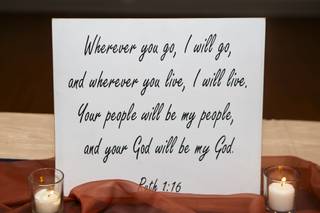 Wherever you go, I will go,
and wherever you live, I will live.
Your people will be my people,
and your God will be my God.
Ruth 1:16